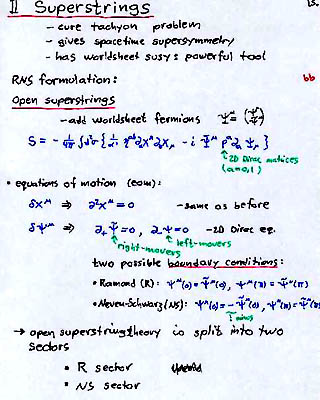 II Superstrings
13.
- cure tachyon problem
- gives spacetime supersymmetry
- has worldsheet susy: powerful tool
RNS formulation:
bb
Open superstrings
- add worldsheet fermions Ψ^μ = (ψ^μ ψ̃^μ)
S = - 1/4π ∫d²σ { 1/α' η^{αβ} ∂_α X^μ ∂_β X_μ - i Ψ̄^μ ρ^α ∂_α Ψ_μ }
2D Dirac matrices
(α=0,1)
• equations of motion (eom):
δX^μ ⇒ ∂²X^μ = 0 - same as before
δΨ^μ ⇒ ∂₊ψ̃ = 0, ∂₋ψ = 0 - 2D Dirac eq.
right-movers left-movers
two possible boundary conditions:
• Ramond (R): ψ^μ(0) = ψ̃^μ(0), ψ^μ(π) = ψ̃^μ(π)
• Neveu-Schwarz (NS): ψ^μ(0) = -ψ̃^μ(0), ψ^μ(π) = ψ̃^μ(π)
→ open superstring theory is split into two
sectors
• R sector
• NS sector